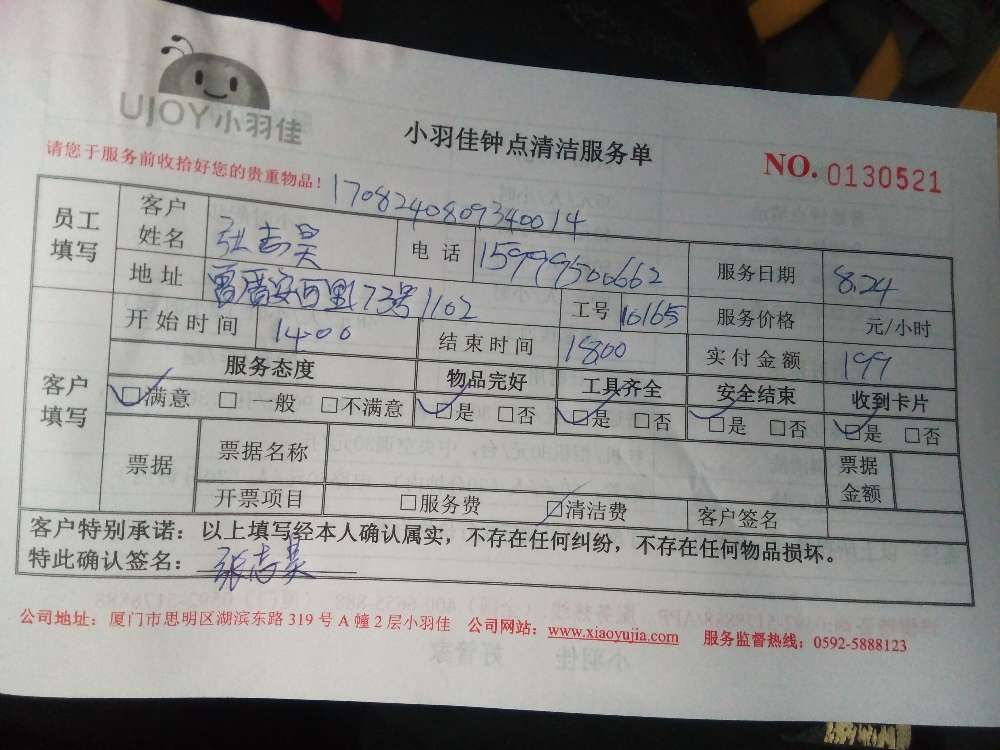 UJOY小羽佳
小羽佳钟点清洁服务单
NO. 0130521
请您于服务前收拾好您的贵重物品！
1708240809340014
员工填写 客户姓名 张志昊 电话 15999500662 服务日期 8.24
地址 安河里73号1102 工号 16165 服务价格 元/小时
客户填写 开始时间 14:00 结束时间 1800 实付金额 199
服务态度 物品完好 工具齐全 安全结束 收到卡片
☑满意 □一般 □不满意 ☑是 □否 ☑是 □否 ☑是 □否 ☑是 □否
票据 票据名称 票据金额
开票项目 □服务费 ☑清洁费 客户签名
客户特别承诺：以上填写经本人确认属实，不存在任何纠纷，不存在任何物品损坏。
特此确认签名：张志昊
公司地址：厦门市思明区湖滨东路319号A幢2层小羽佳 公司网站：www.xiaoyujia.com 服务监督热线：0592-5888123